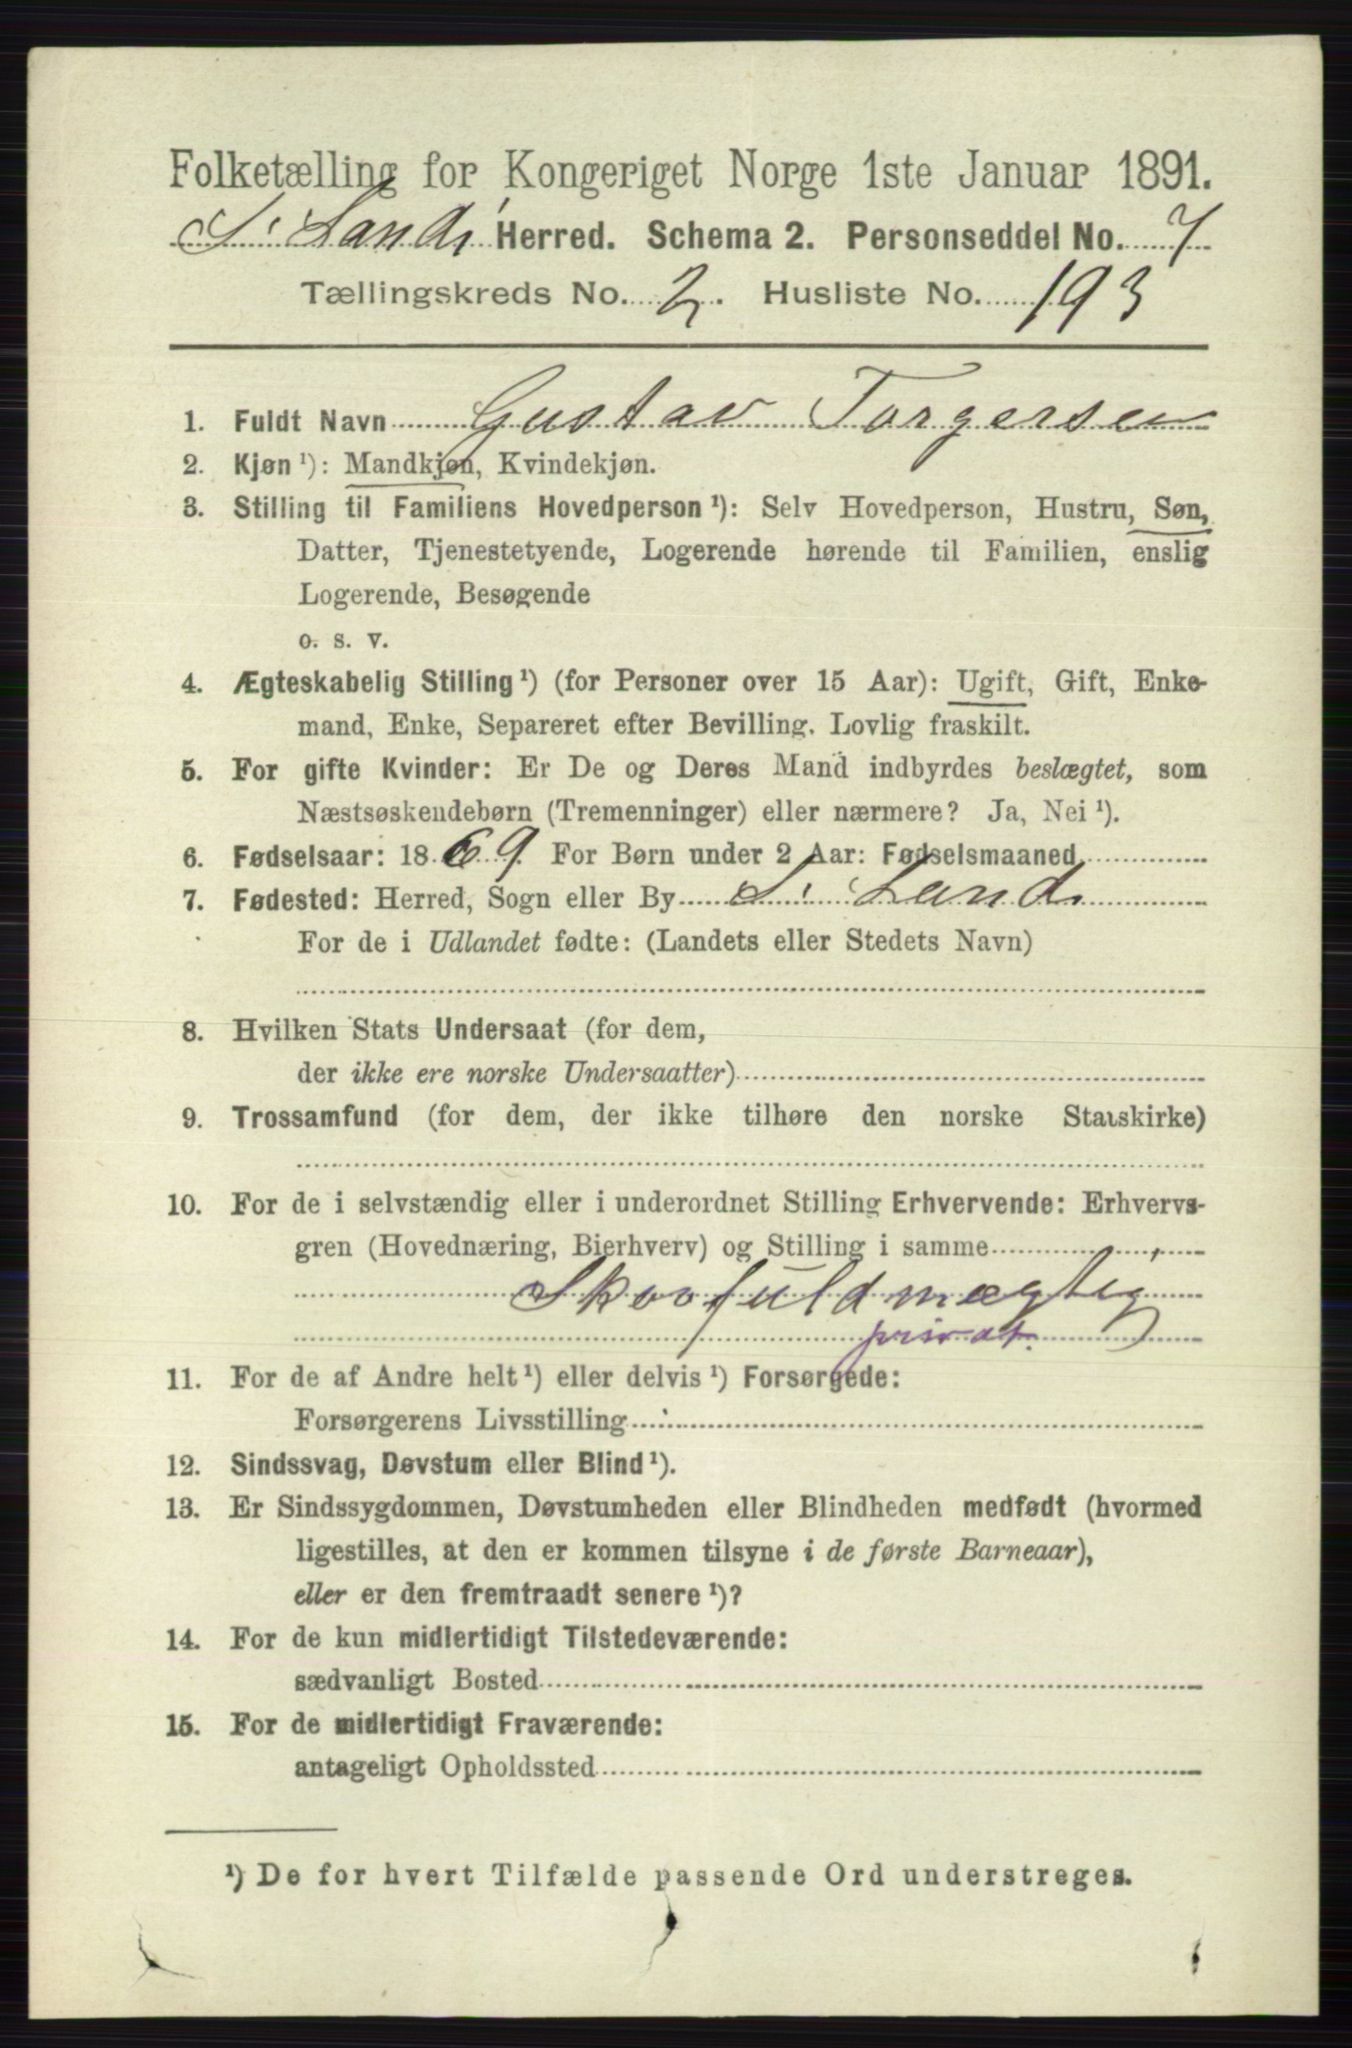 Folketælling for Kongeriget Norge 1ste Januar 1891.
S. Land Herred. Schema 2. Personseddel No. 7
Tællingskreds No. 2. Husliste No. 193
1. Fuldt Navn Gustav Torgersen
2. Kjøn ¹): Mandkjøn, Kvindekjøn.
3. Stilling til Familiens Hovedperson ¹): Selv Hovedperson, Hustru, Søn,
Datter, Tjenestetyende, Logerende hørende til Familien, enslig
Logerende, Besøgende
o. s. v.
4. Ægteskabelig Stilling ¹) (for Personer over 15 Aar): Ugift, Gift, Enke-
mand, Enke, Separeret efter Bevilling. Lovlig fraskilt.
5. For gifte Kvinder: Er De og Deres Mand indbyrdes beslægtet, som
Næstsøskendebørn (Tremenninger) eller nærmere? Ja, Nei ¹).
6. Fødselsaar: 1869. For Børn under 2 Aar: Fødselsmaaned
7. Fødested: Herred, Sogn eller By S. Land
For de i Udlandet fødte: (Landets eller Stedets Navn)
8. Hvilken Stats Undersaat (for dem,
der ikke ere norske Undersaatter)
9. Trossamfund (for dem, der ikke tilhøre den norske Statskirke)
10. For de i selvstændig eller i underordnet Stilling Erhvervende: Erhvervs-
gren (Hovednæring, Bierhverv) og Stilling i samme
Skovfuldmægtig
privat.
11. For de af Andre helt ¹) eller delvis ¹) Forsørgede:
Forsørgerens Livsstilling
12. Sindssvag, Døvstum eller Blind ¹).
13. Er Sindssygdommen, Døvstumheden eller Blindheden medfødt (hvormed
ligestilles, at den er kommen tilsyne i de første Barneaar),
eller er den fremtraadt senere ¹)?
14. For de kun midlertidigt Tilstedeværende:
sædvanligt Bosted
15. For de midlertidigt Fraværende:
antageligt Opholdssted
¹) De for hvert Tilfælde passende Ord understreges.